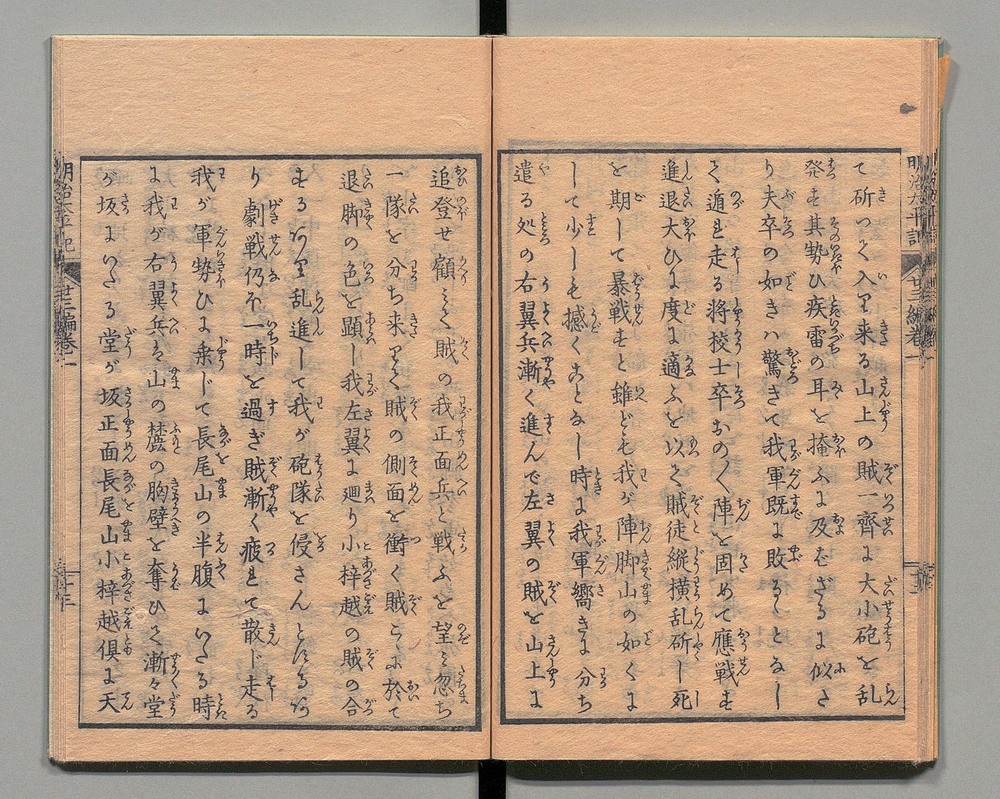 明治太平記 廿三編巻一
て斫つて入り来る山上の賊一齊ま大小砲を乱
発せ其勢ひ疾雷の耳を掩ふま及むざるま似さ
り夫卒の如きハ驚きて我軍既ま敗るゝとなし
て遁れ走る将校士卒おのく陣を固めて應戦せ
進退大ひま度ま適ふを以て賊徒縦横乱斫し死
を期して暴戦せと雖ども我が陣脚山の如くま
して少しも撼くことなし時ま我軍嚮きま分ち
遣る処の右翼兵漸く進んで左翼の賊を山上ま
追登せ顧ミて賊の我正面兵と戦ふを望ミ忽ち
一隊を分ち来りて賊の側面を衝く賊こゝ於て
退脚の色を顕し我左翼ま廻り小梓越の賊の合
せるあり乱進して我が砲隊を侵さんとはるあ
り劇戦仍ふ一時を過ぎ賊漸く疲れて散ド走る
我が軍勢ひま乗じて長尾山の半腹まいたる時
ま我が右翼兵は山の麓の胸壁を奪ひて漸々堂
が坂まいたる堂が坂正面長尾山小梓越倶ま天
明治太平記 廿三編巻一 十三